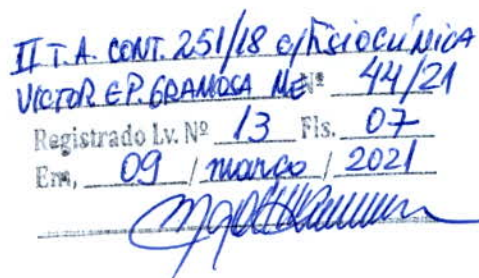 II T.A. CONT. 251/18 c/ FISIOCLÍNICA
VICTOR E P. GRAMOSA ME Nº 44/21
Registrado Lv. Nº 13 Fls. 07
Em, 09 / março / 2021